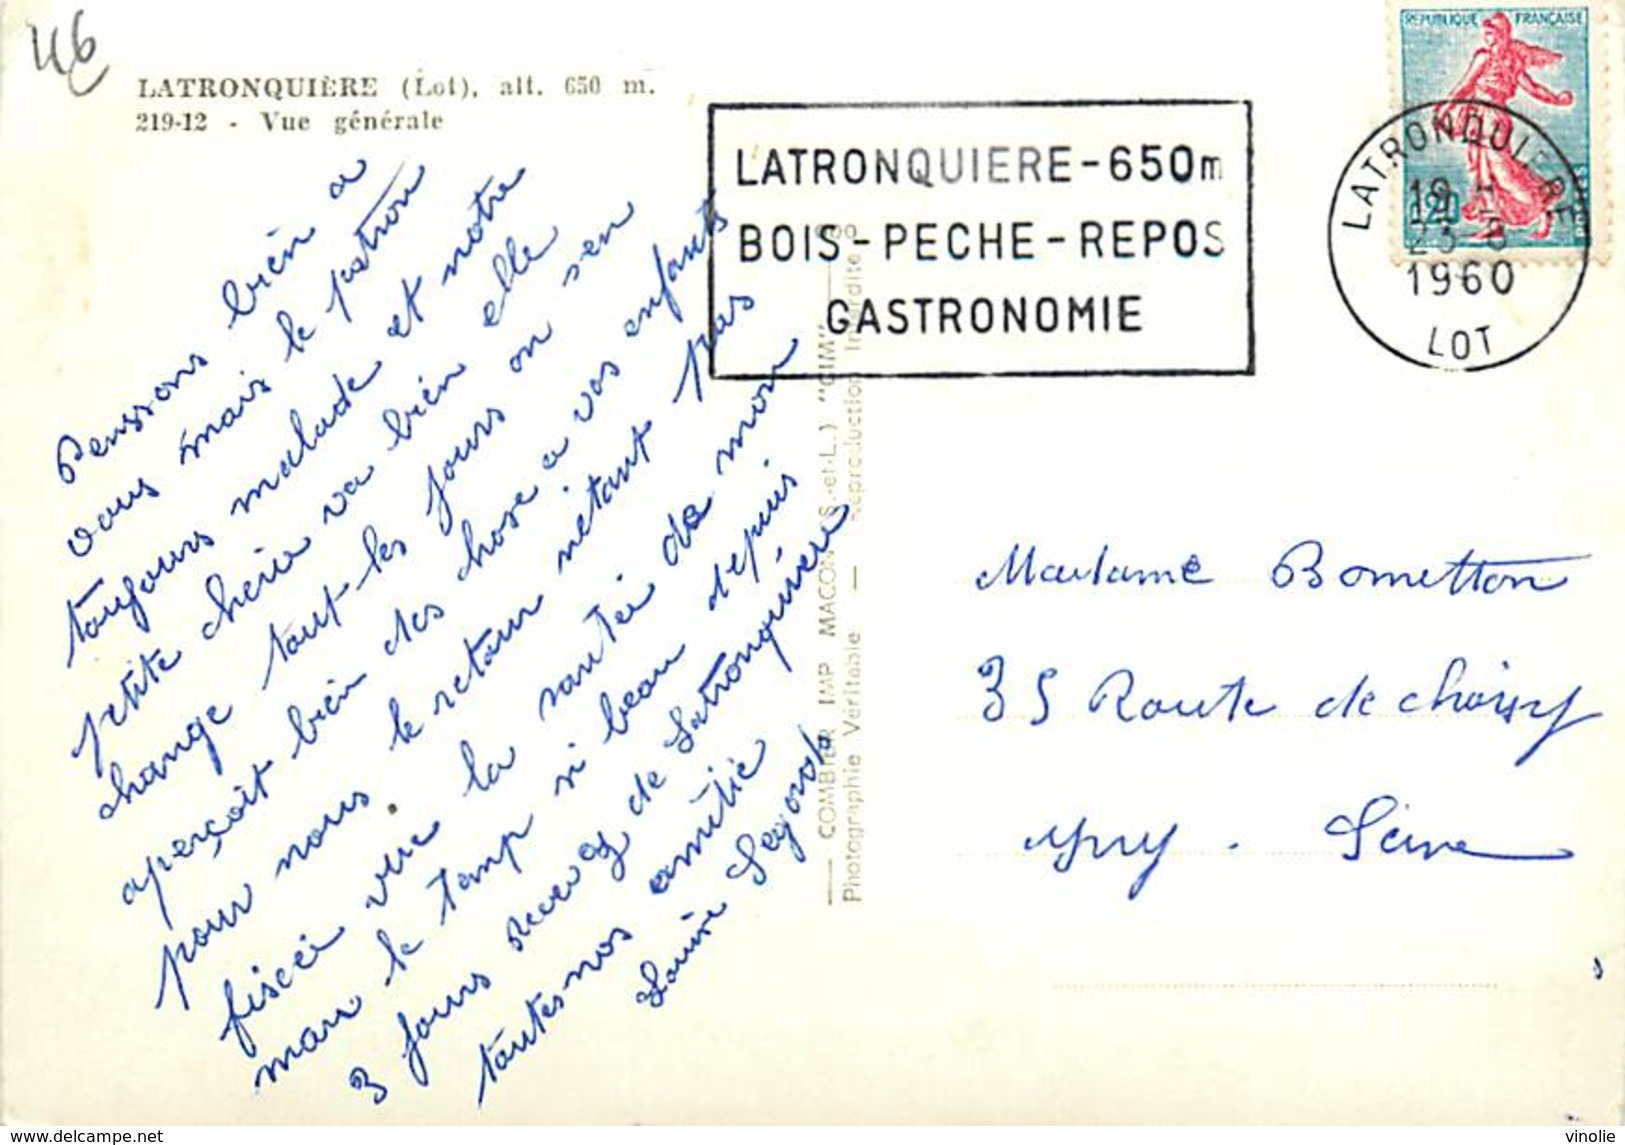 46
LATRONQUIÈRE (Lot), alt. 650 m.
219-12 - Vue générale
LATRONQUIERE - 650m
BOIS - PECHE - REPOS
GASTRONOMIE
REPUBLIQUE FRANÇAISE
LATRONQUIERE
19 H
23-8
1960
LOT
Penssons bien a
vous mais le patron
toujours malade et notre
petite cherie va bien elle
change tout les jours on sen
aperçoit bien des chose a vos enfants
pour nous le retour nétant pas
fiscée vue la santée de mon
mari le temp si beau depuis
3 jours recevez de Latronquière
toutes nos amitié
Louise
COMBIER IMP MACON (S.-et-L.) "CIM"
Photographie Véritable — Reproduction Interdite
Madame Bometton
35 Route de choisy
Seine
delcampe.net
vinolie